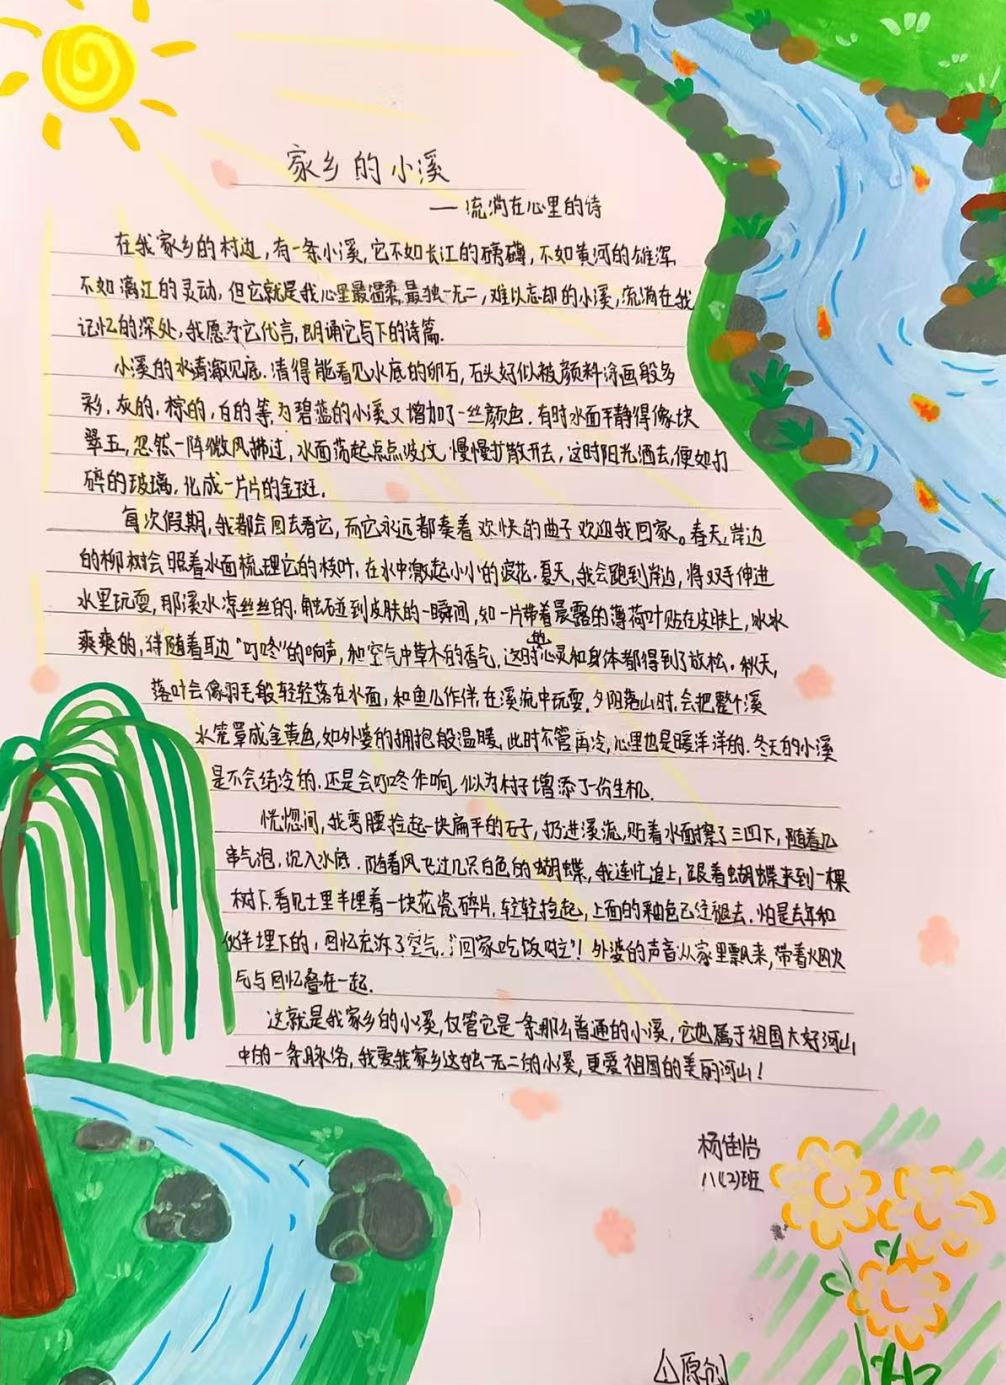 家乡的小溪
——流淌在心里的诗
在我家乡的村边,有一条小溪,它不如长江的磅礴,不如黄河的雄浑,
不如漓江的灵动,但它就是我心里最温柔,最独一无二,难以忘却的小溪,流淌在我
记忆的深处,我愿为它代言,朗诵它写下的诗篇.
小溪的水清澈见底.清得能看见水底的卵石,石头好似被颜料涂画般多
彩,灰的,棕的,白的等,为碧蓝的小溪又增加了一丝颜色.有时水面平静得像块
翠玉,忽然一阵微风拂过,水面荡起点点波纹,慢慢扩散开去,这时阳光洒去,便如打
碎的玻璃,化成一片片的金斑.
每次假期,我都会回去看它,而它永远都奏着欢快的曲子欢迎我回家。春天,岸边
的柳树会照着水面梳理它的枝叶,在水中激起小小的浪花.夏天,我会跑到岸边,将双手伸进
水里玩耍,那溪水凉丝丝的,触碰到皮肤的一瞬间,如一片带着晨露的薄荷叶贴在皮肤上,冰冰
爽爽的,伴随着耳边“叮咚”的响声,和空气中草木的香气,这时的心灵和身体都得到了放松.秋天,
落叶会像羽毛般轻轻落在水面,和鱼儿作伴,在溪流中玩耍.夕阳落山时,会把整个溪
水笼罩成金黄色,如外婆的拥抱般温暖,此时不管再冷,心里也是暖洋洋的.冬天的小溪
是不会结冷的.还是会叮咚作响,似为村子增添了一份生机.
恍惚间,我弯腰捡起一块扁平的石子,扔进溪流,贴着水面擦了三四下,随着几
串气泡,沉入水底.随着风飞过几只白色的蝴蝶,我连忙追上,跟着蝴蝶来到一棵
树下.看见土里半埋着一块花瓷碎片,轻轻捡起,上面的釉色已经褪去.怕是去年和
伙伴埋下的,回忆充沛了空气.“回家吃饭啦”!外婆的声音从家里飘来,带着烟火
气与回忆叠在一起.
这就是我家乡的小溪,仅管它是一条那么普通的小溪,它也属于祖国大好河山
中的一条脉络,我爱我家乡这独一无二的小溪,更爱祖国的美丽河山!
杨佳怡
八(2)班
原创